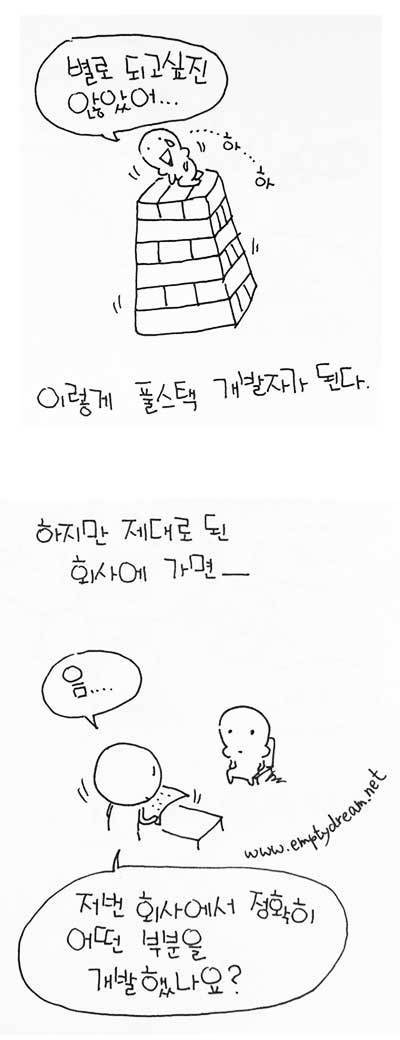 별로 되고싶진
않았어...
하
하
이렇게 풀스택 개발자가 된다.
하지만 제대로 된
회사에 가면—
음....
www.emptydream.net
저번 회사에서 정확히
어떤 부분을
개발했나요?